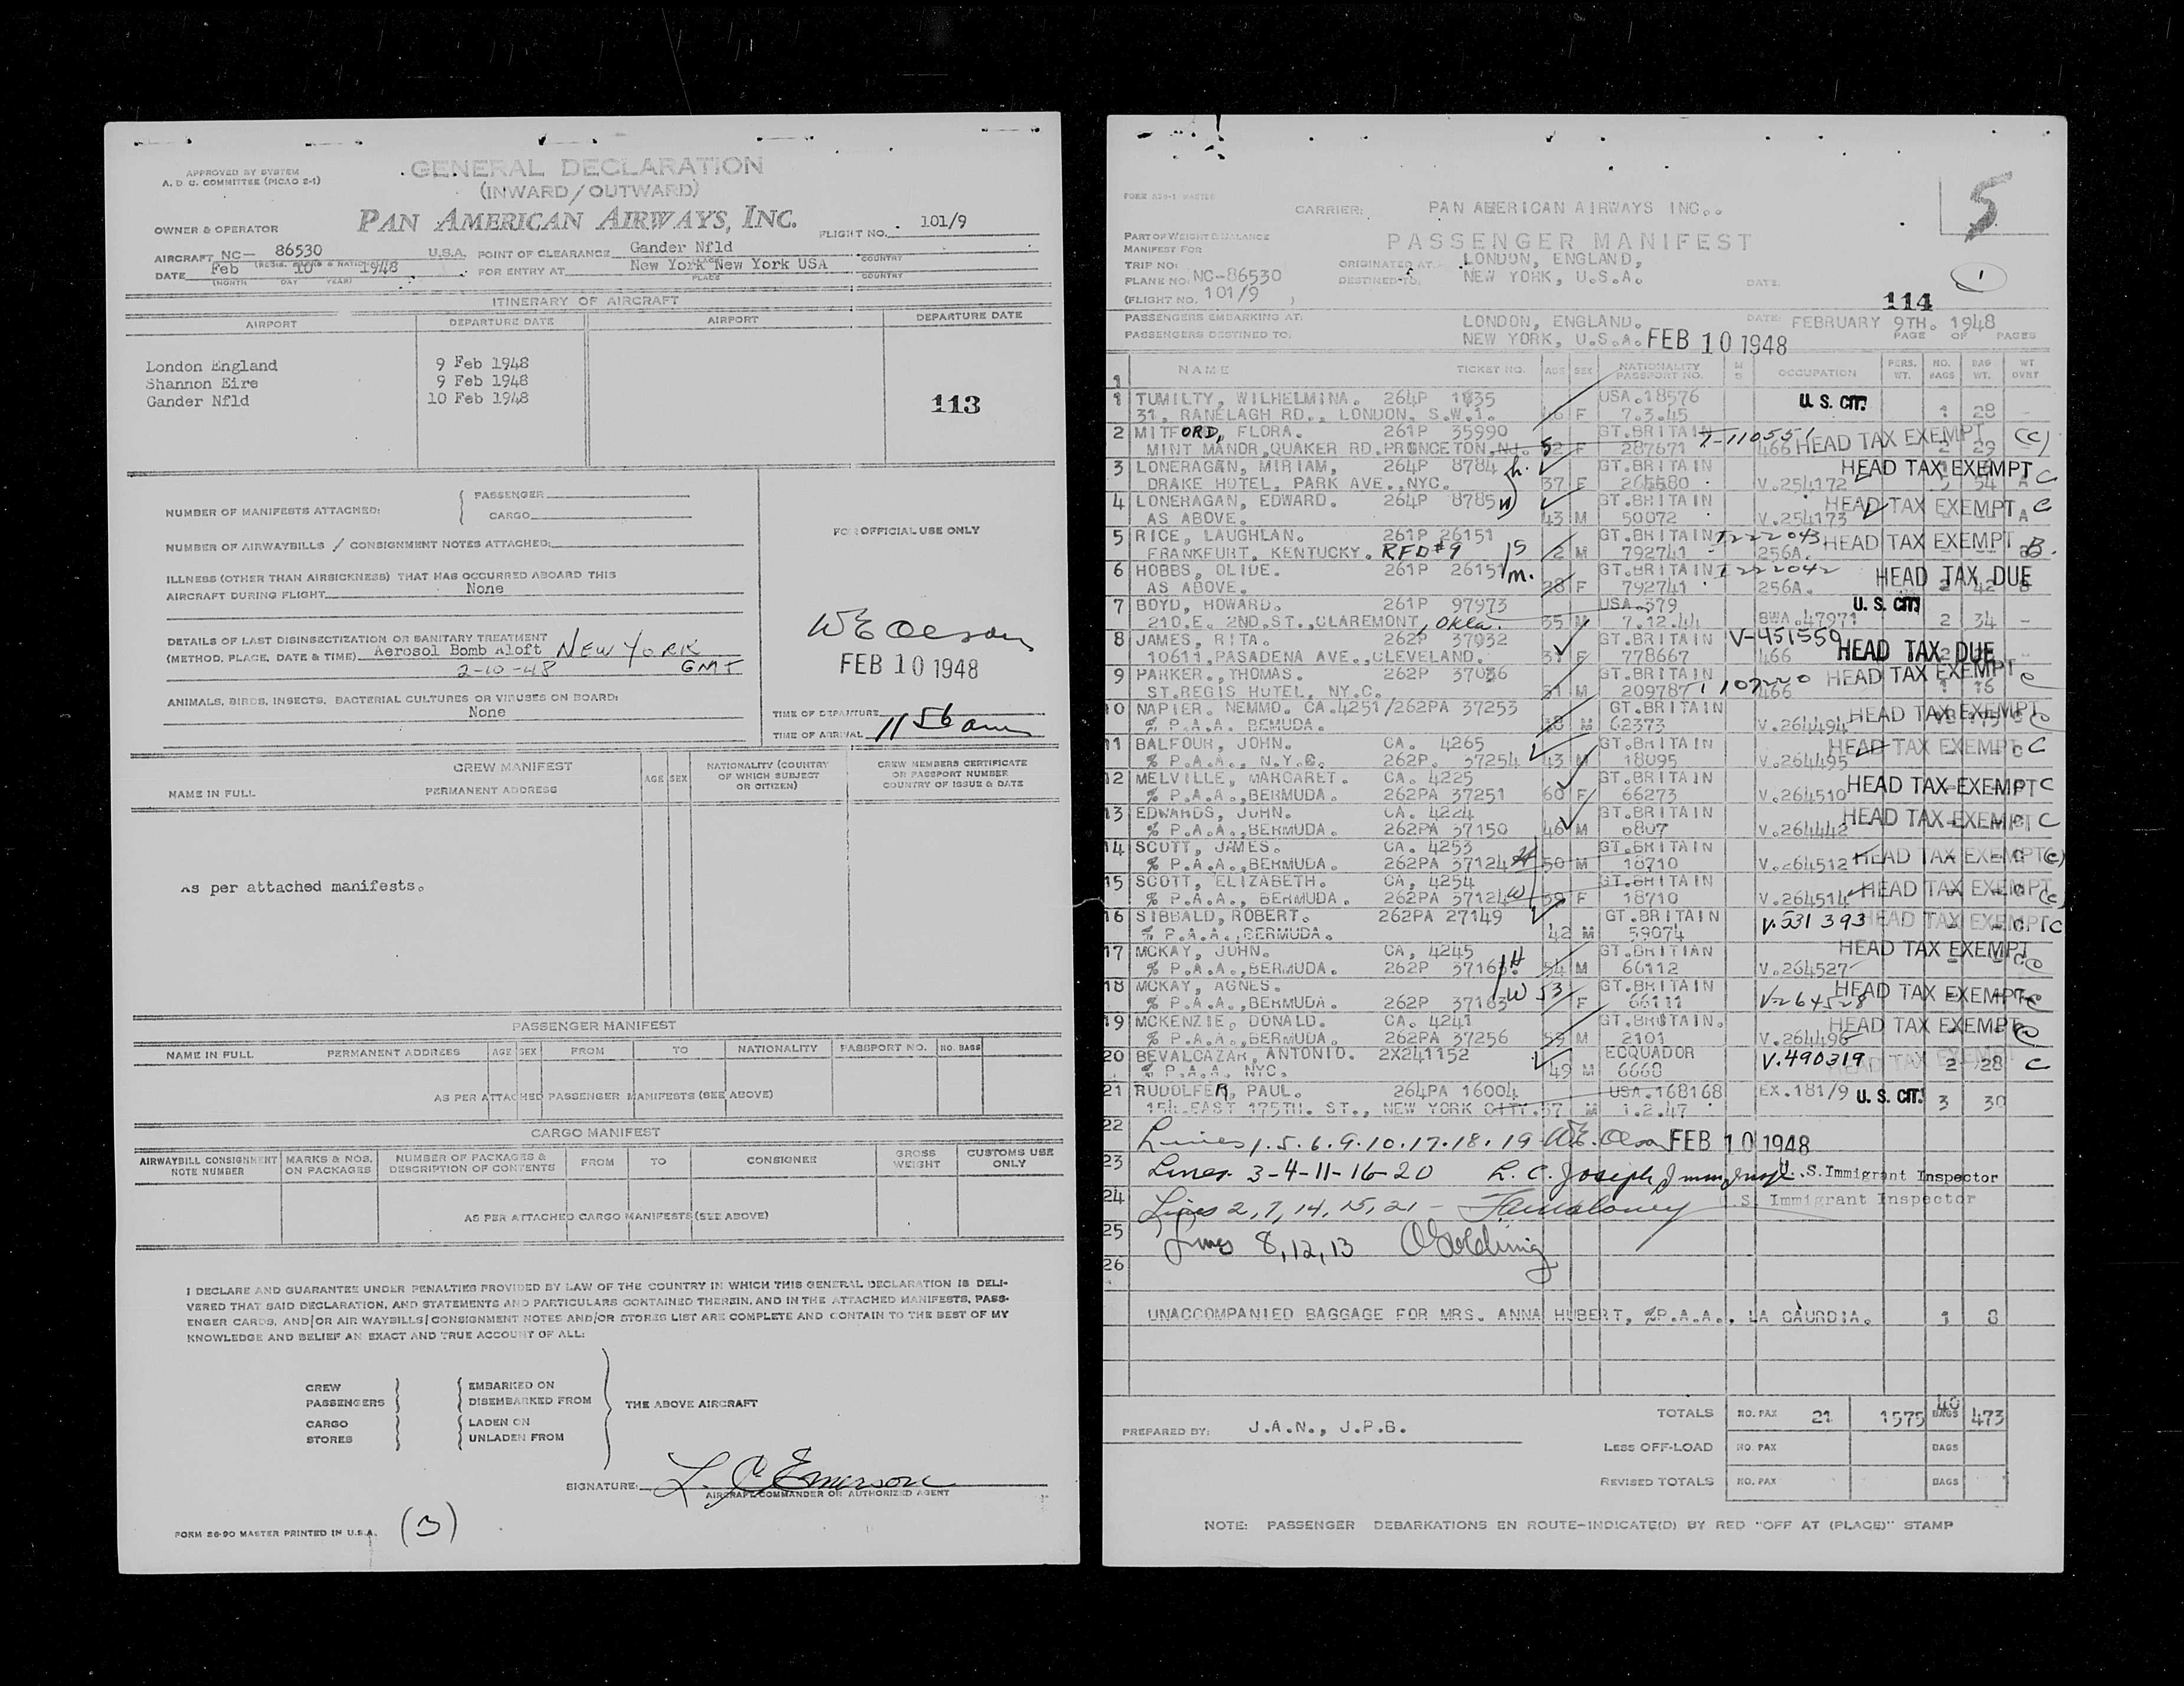 APPROVED BY SYSTEM
A. D. C. COMMITTEE (PICAO 2-1)
GENERAL DECLARATION
(INWARD/OUTWARD)
OWNER & OPERATOR
PAN AMERICAN AIRWAYS, INC.
FLIGHT NO. 101/9
AIRCRAFT NC- 86530 U.S.A. POINT OF CLEARANCE Gander Nfld
DATE Feb 10 1948 FOR ENTRY AT New York New York USA
(MONTH DAY YEAR) PLACE COUNTRY
ITINERARY OF AIRCRAFT
AIRPORT DEPARTURE DATE AIRPORT DEPARTURE DATE
London England 9 Feb 1948
Shannon Eire 9 Feb 1948
Gander Nfld 10 Feb 1948
113
NUMBER OF MANIFESTS ATTACHED: PASSENGER
CARGO
NUMBER OF AIRWAYBILLS / CONSIGNMENT NOTES ATTACHED:
FOR OFFICIAL USE ONLY
ILLNESS (OTHER THAN AIRSICKNESS) THAT HAS OCCURRED ABOARD THIS
AIRCRAFT DURING FLIGHT None
DETAILS OF LAST DISINSECTIZATION OR SANITARY TREATMENT
(METHOD, PLACE, DATE & TIME) Aerosol Bomb Aloft NEW YORK
2-10-48 GMT
WE Olson
FEB 10 1948
ANIMALS, BIRDS, INSECTS, BACTERIAL CULTURES OR VIRUSES ON BOARD:
None
TIME OF DEPARTURE
TIME OF ARRIVAL 11 56 am
CREW MANIFEST
NAME IN FULL PERMANENT ADDRESS AGE SEX NATIONALITY (COUNTRY OF WHICH SUBJECT OR CITIZEN) CREW MEMBERS CERTIFICATE OR PASSPORT NUMBER COUNTRY OF ISSUE & DATE
As per attached manifests.
PASSENGER MANIFEST
NAME IN FULL PERMANENT ADDRESS AGE SEX FROM TO NATIONALITY PASSPORT NO. NO. BAGS
AS PER ATTACHED PASSENGER MANIFESTS (SEE ABOVE)
CARGO MANIFEST
AIRWAYBILL CONSIGNMENT NOTE NUMBER MARKS & NOS. ON PACKAGES NUMBER OF PACKAGES & DESCRIPTION OF CONTENTS FROM TO CONSIGNEE GROSS WEIGHT CUSTOMS USE ONLY
AS PER ATTACHED CARGO MANIFESTS (SEE ABOVE)
I DECLARE AND GUARANTEE UNDER PENALTIES PROVIDED BY LAW OF THE COUNTRY IN WHICH THIS GENERAL DECLARATION IS DELI-
VERED THAT SAID DECLARATION, AND STATEMENTS AND PARTICULARS CONTAINED THEREIN, AND IN THE ATTACHED MANIFESTS, PASS-
ENGER CARDS, AND/OR AIR WAYBILLS/CONSIGNMENT NOTES AND/OR STORES LIST ARE COMPLETE AND CONTAIN TO THE BEST OF MY
KNOWLEDGE AND BELIEF AN EXACT AND TRUE ACCOUNT OF ALL:
CREW EMBARKED ON
PASSENGERS DISEMBARKED FROM THE ABOVE AIRCRAFT
CARGO LADEN ON
STORES UNLADEN FROM
SIGNATURE: L. C Emerson
AIRCRAFT COMMANDER OR AUTHORIZED AGENT
FORM 86-90 MASTER PRINTED IN U.S.A. (3)
5
CARRIER: PAN AMERICAN AIRWAYS INC..
PART OF WEIGHT & BALANCE
MANIFEST FOR
PASSENGER MANIFEST
TRIP NO: ORIGINATED AT LONDON, ENGLAND,
PLANE NO: NC-86530 DESTINED TO: NEW YORK, U.S.A. DATE 1
(FLIGHT NO. 101/9 ) 114
PASSENGERS EMBARKING AT: LONDON, ENGLAND. DATE: FEBRUARY 9TH. 1948
PASSENGERS DESTINED TO: NEW YORK, U.S.A. FEB 10 1948 PAGE OF PAGES
NAME TICKET NO. AGE SEX NATIONALITY PASSPORT NO. M S OCCUPATION PERS. WT. NO. BAGS BAG WT. WT OVNT
1 TUMILTY, WILHELMINA. 264P 1835 USA.18576 U. S. CIT.
31, RANELAGH RD., LONDON, S.W.1. F 7.3.45 1 28 -
2 MITFORD, FLORA. 261P 35990 GT.BRITAIN T-110551 HEAD TAX EXEMPT (C)
MINT MANOR, QUAKER RD. PRINCETON, NJ. 52 F 287671 466 2 29
3 LONERAGAN, MIRIAM, 264P 8784 h. GT.BRITAIN HEAD TAX EXEMPT C
DRAKE HOTEL, PARK AVE., NYC. 37 F V.254172
4 LONERAGAN, EDWARD. 264P 8785 GT.BRITAIN HEAD TAX EXEMPT C
AS ABOVE. 43 M 50072 V.254173 A
5 RICE, LAUGHLAN. 261P 26151 GT.BRITAIN T222043 HEAD TAX EXEMPT
FRANKFURT, KENTUCKY. RFD#9 2 M 792741 256A. B.
6 HOBBS, OLIDE. 261P 26151 m. GT.BRITAIN T222042 HEAD TAX DUE
AS ABOVE. 38 F 792741 256A. 2 42
7 BOYD, HOWARD. 261P 97973 USA.379 U. S. CIT.
210.E. 2ND.ST., CLAREMONT, Okla. 35 M 7.12.44 BWA.47971 2 34 -
8 JAMES, RITA. 262P 37032 GT.BRITAIN V-451550 HEAD TAX DUE
10611, PASADENA AVE., CLEVELAND. 37 F 778667 466 2
9 PARKER., THOMAS. 262P 37036 GT.BRITAIN HEAD TAX EXEMPT C
ST.REGIS HOTEL, NY.C. 31 M 209787 466 1 16
10 NAPIER. NEMMO. CA.4251/262PA 37253 GT.BRITAIN HEAD TAX EXEMPT C
% P.A.A. BEMUDA. 38 M 62373 V.264494
11 BALFOUR, JOHN. CA. 4265 GT.BRITAIN HEAD TAX EXEMPT C
% P.A.A., N.Y.C. 262P. 37254 43 M 18095 V.264495
12 MELVILLE, MARGARET. CA. 4225 GT.BRITAIN HEAD TAX EXEMPT C
% P.A.A., BERMUDA. 262PA 37251 60 F 66273 V.264510
13 EDWARDS, JOHN. CA. 4224 GT.BRITAIN HEAD TAX EXEMPT C
% P.A.A., BERMUDA. 262PA 37150 46 M 6807 V.264442
14 SCOTT, JAMES. CA. 4253 GT.BRITAIN HEAD TAX EXEMPT (C)
% P.A.A., BERMUDA. 262PA 37124 H 50 M 18710 V.264512
15 SCOTT, ELIZABETH. CA, 4254 GT.BRITAIN HEAD TAX EXEMPT (C)
% P.A.A., BERMUDA. 262PA 37124 W 39 F 18710 V.264514
16 SIBBALD, ROBERT. 262PA 27149 GT.BRITAIN V.531393 HEAD TAX EXEMPT C
% P.A.A., BERMUDA. 42 M 59074
17 MCKAY, JOHN. CA, 4245 GT.BRITIAN HEAD TAX EXEMPT
% P.A.A., BERMUDA. 262P 37163 H 54 M 66112 V.264527 C
18 MCKAY, AGNES. GT.BRITAIN HEAD TAX EXEMPT C
% P.A.A., BERMUDA. 262P 37163 W 53 F 66111 V264528
19 MCKENZIE, DONALD. CA. 4241 GT.BRITAIN. HEAD TAX EXEMPT C
% P.A.A., BERMUDA. 262PA 37256 59 M 2101 V.264496
20 BEVALCAZAR, ANTONIO. 2X241152 ECQUADOR V.490319 HEAD TAX EXEMPT
% P.A.A. NYC. 49 M 6668 2 28 C
21 RUDOLFER, PAUL. 264PA 16004 USA.168168 EX.181/9 U. S. CIT.
154 EAST 175TH. ST., NEW YORK CITY. 57 M 1.2.47 3 30
22 Lines 1.5.6.9.10.17.18.19 W.E. Olson FEB 10 1948
23 Lines 3-4-11-16-20 L. C. Joseph Immg Inspt U.S. Immigrant Inspector
24 Lines 2, 7, 14, 15, 21 - U.S. Immigrant Inspector
25 Lines 8, 12, 13 O Golding
26
UNACCOMPANIED BAGGAGE FOR MRS. ANNA HUBERT, %P.A.A., LA GAURDIA. 1 8
TOTALS NO. PAX 21 1575 40 BAGS 473
PREPARED BY: J.A.N., J.P.B.
LESS OFF-LOAD NO. PAX BAGS
REVISED TOTALS NO. PAX BAGS
NOTE: PASSENGER DEBARKATIONS EN ROUTE-INDICATE(D) BY RED "OFF AT (PLACE)" STAMP